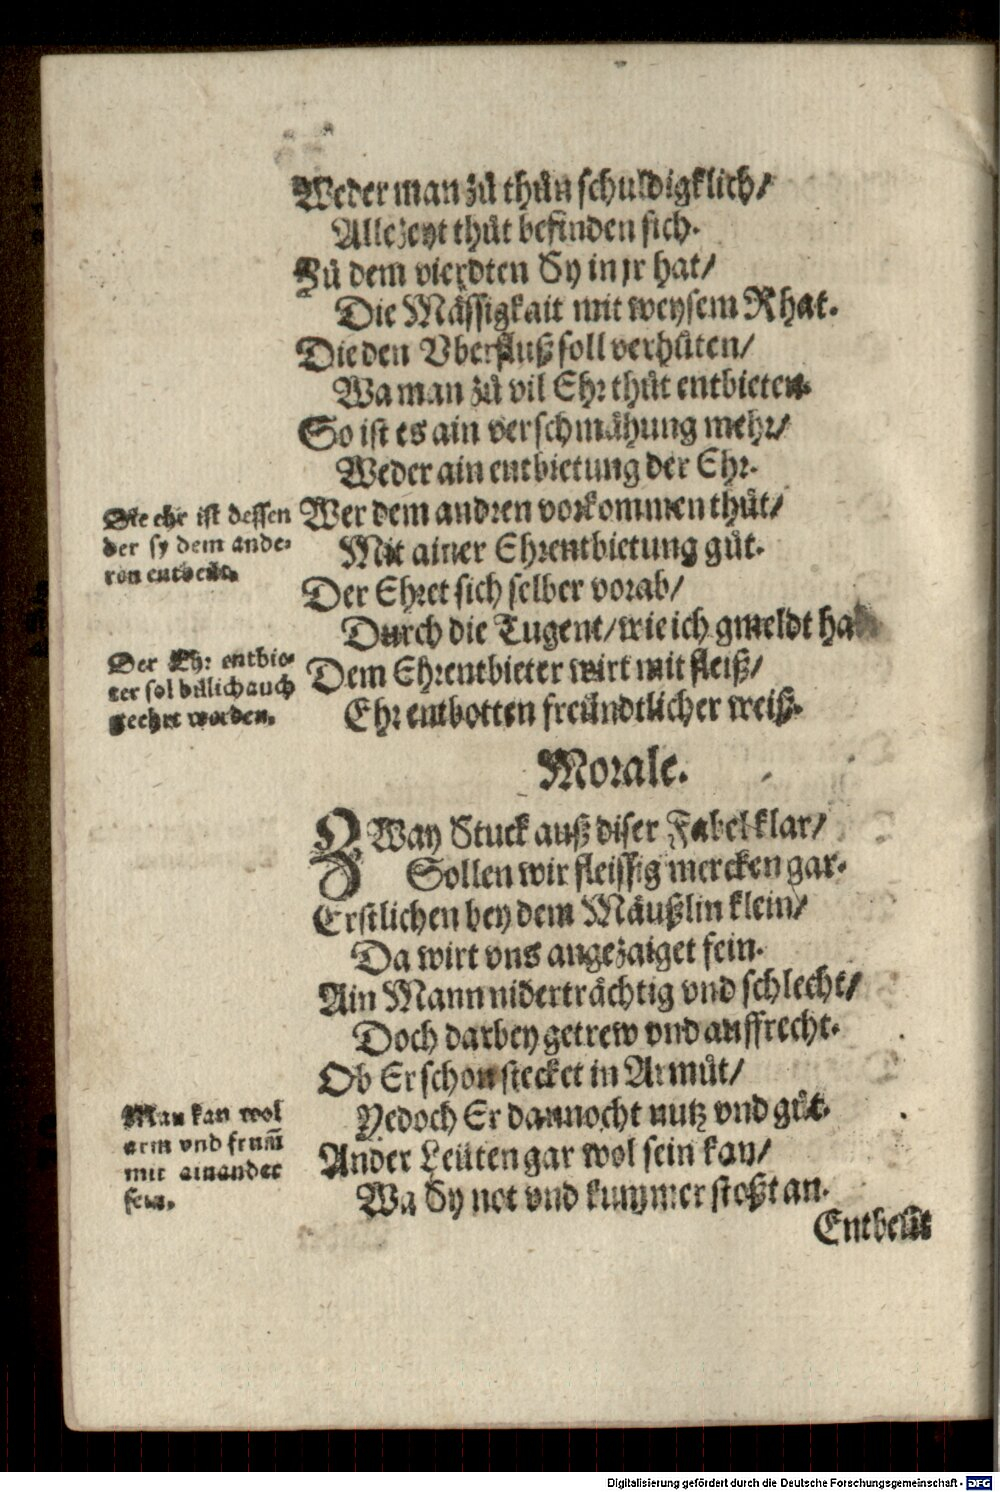 Weder man zů thůn schuldigklich/
Allezeyt thůt befinden sich.
Zů dem vierdten Sy in jr hat/
Die Mässigkait mit weysem Rhat.
Die den Vberfluß soll verhůten/
Wa man zů vil Ehr thůt entbieten.
So ist es ain verschmähung mehr/
Weder ain entbietung der Ehr.
Die ehr ist dessen
der sy dem ande-
ren entbeüt.
Wer dem andren vorkommen thůt/
Mit ainer Ehrentbietung gůt.
Der Ehret sich selber vorab/
Durch die Tugent/wie ich gmeldt hab
Der Ehr entbie-
ter sol billich auch
geehrt werden.
Dem Ehrentbieter wirt mit fleiß/
Ehr entbotten freündtlicher weiß.
Morale.
ZWay Stuck auß diser Fabel klar/
Sollen wir fleissig mercken gar.
Erstlichen bey dem Mäußlin klein/
Da wirt vns angezaiget fein.
Ain Mann niderträchtig vnd schlecht/
Doch darbey getrew vnd auffrecht.
Ob Er schon stecket in Armůt/
Yedoch Er dannocht nutz vnd gůt.
Man kan wol
arm vnd frum̃
mit ainander
sein.
Ander Leüten gar wol sein kan/
Wa Sy not vnd kummer stoßt an.
Entbeüt
Digitalisierung gefördert durch die Deutsche Forschungsgemeinschaft - DFG